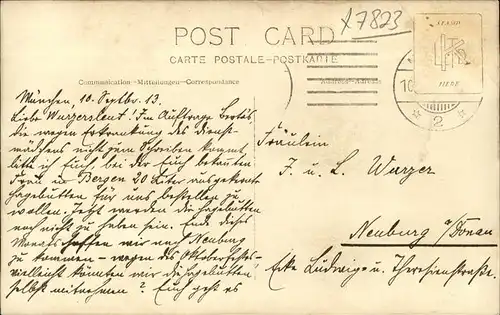 X7823
POST CARD
CARTE POSTALE-POSTKARTE
Communication-Mitteilungen-Correspondance
STAMP
HERE
2
München, 10. Septbr. 13.
Liebe Wurzersleut! Im Auftrage Berta's
die wegen Erkrankung des Dienst-
mädchens nicht zum Schreiben kommt,
bitte ich Euch, bei der Euch bekannten
Frau in Bergen 20 Liter ausgekernte
Hagebutten für uns bestellen zu
wollen. Jetzt werden die Hagebutten
noch nicht zu haben sein. Ende dieses
Monats hoffen wir nach Neuburg
zu kommen - wegen des Oktoberfestes -
vielleicht könnten wir die Hagebutten
selbst mitnehmen? Euch geht es
Fräulein
F. u. L. Wurzer
Neuburg a/Donau
Ecke Ludwig u. Theresienstraße.